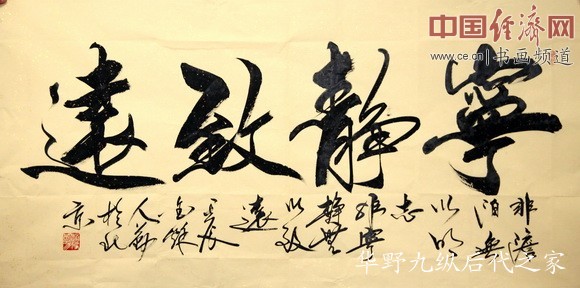 中国经济网
www.ce.cn 书画频道
寧靜致遠
非澹
泊無
以明
志
非寧
靜無
以致
遠
於北
京
华野九纵后代之家